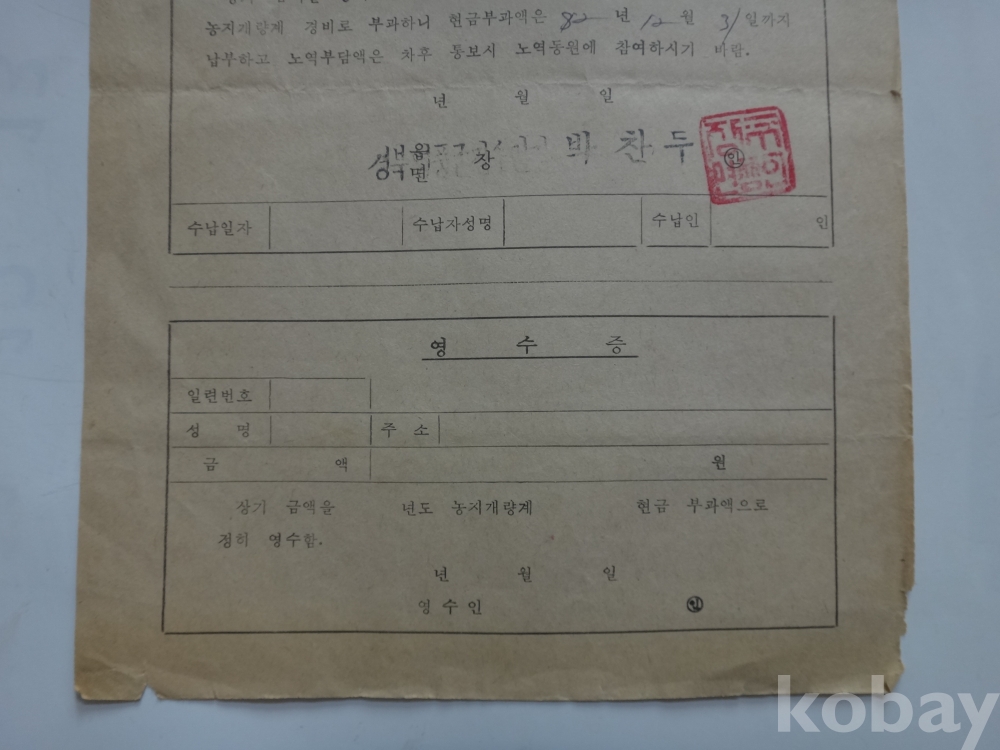 농지개량계 경비로 부과하니 현금부과액은 82 년 12 월 31 일까지
납부하고 노역부담액은 차후 통보시 노역동원에 참여하시기 바람.
년 월 일
읍
면
장 박 찬 두 ㊞
수납일자 수납자성명 수납인 인
영 수 증
일련번호
성 명 주 소
금 액 원
상기 금액을 년도 농지개량계 현금 부과액으로
정히 영수함.
년 월 일
영 수 인 ㊞
kobay